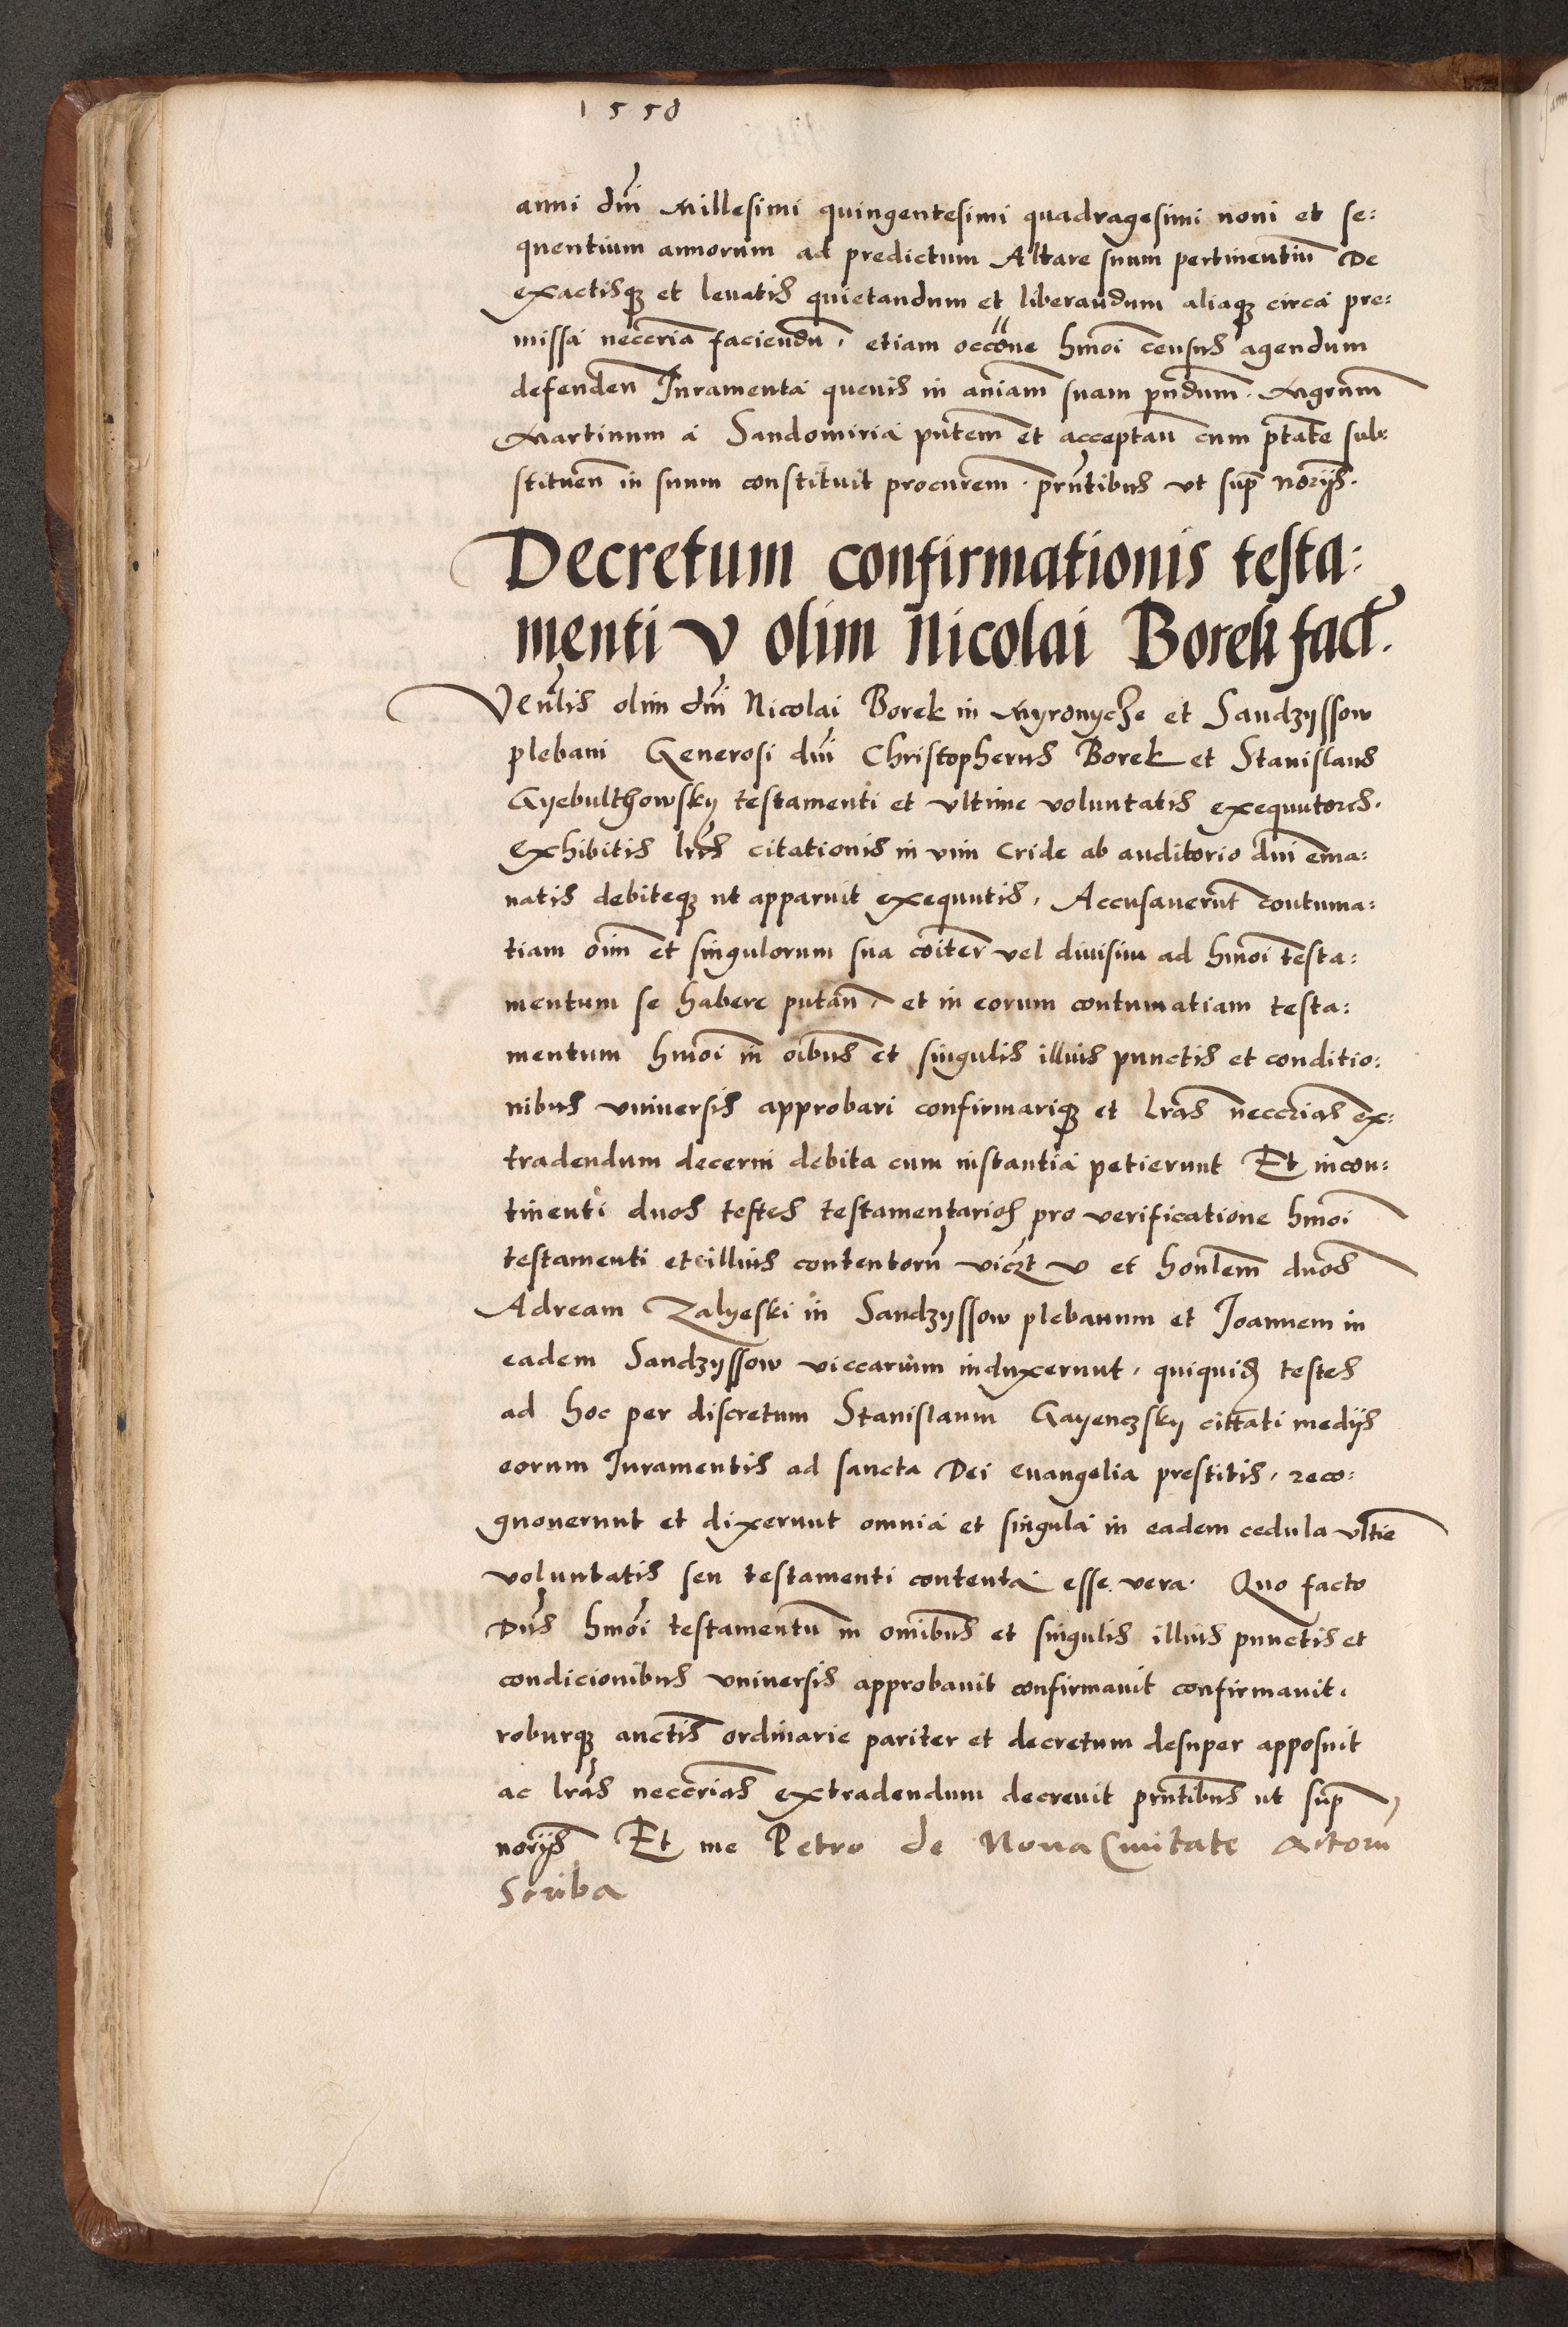 1550
anni dni Millesimi quingentesimi quadragesimi noni et se:
quentium annorum ad predictum Altare suum pertinentiu De
exactisq et leuatis quietandum et liberandum aliaq circa pre:
missa necceria faciendu, etiam occone hmoi census agendum
defenden Iuramenta queuis in aniam suam prndum. Mgrum
Martinum a Sandomiria pntem et acceptan cum ptate sub:
stituen in suum constituit procurem. prntibus vt sup noriis.
Decretum confirmationis testa:
menti V olim Nicolai Borek fact.
Venlis olim dni Nicolai Borek in Myronycze et Sandzyssow
plebani Generosi dni Christopherus Borek et Stanislaus
Gyebulthowsky testamenti et vltime voluntatis exequutores.
Exhibitis lris citationis in vim cride ab auditorio dni ema:
natis debiteq ut apparuit exequutis, Accusauerunt contuma:
tiam oim et singulorum sua coiter vel diuisim ad hmoi testa:
mentum se habere putan, et in eorum contumatiam testa:
mentum hmoi in oibus et singulis illius punctis et conditio:
nibus vniuersis approbari confirmariq et lras neccrias ex:
tradendum decerni debita cum instantia petierunt Et incon:
tinenti duos testes testamentarios pro verificatione hmoi
testamenti et illius contentoru viczt v et honlem duos
Adream Zalyeski in Sandzyssow plebanum et Joannem in
eadem Sandzyssow viccarium induxerunt, quiquid testes
ad hoc per discretum Stanislaum Gayenczsky cittati mediis
eorum Iuramentis ad sancta Dei euangelia prestitis, reco:
gnouerunt et dixerunt omnia et singula in eadem cedula vltie
voluntatis seu testamenti contenta esse vera. Quo facto
Dns hmoi testamentu in omibus et singulis illius punctis et
condicionibus vniuersis approbauit confirmauit confirmauit.
roburq auctis ordinarie pariter et decretum desuper apposuit
ac lras neccerias extradendum decreuit prntibus ut sup
noriis Et me Petro de Noua Ciuitate Actoru
Scriba